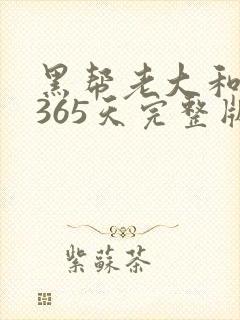 黑帮老大和
365天完整版
紫蘇茶